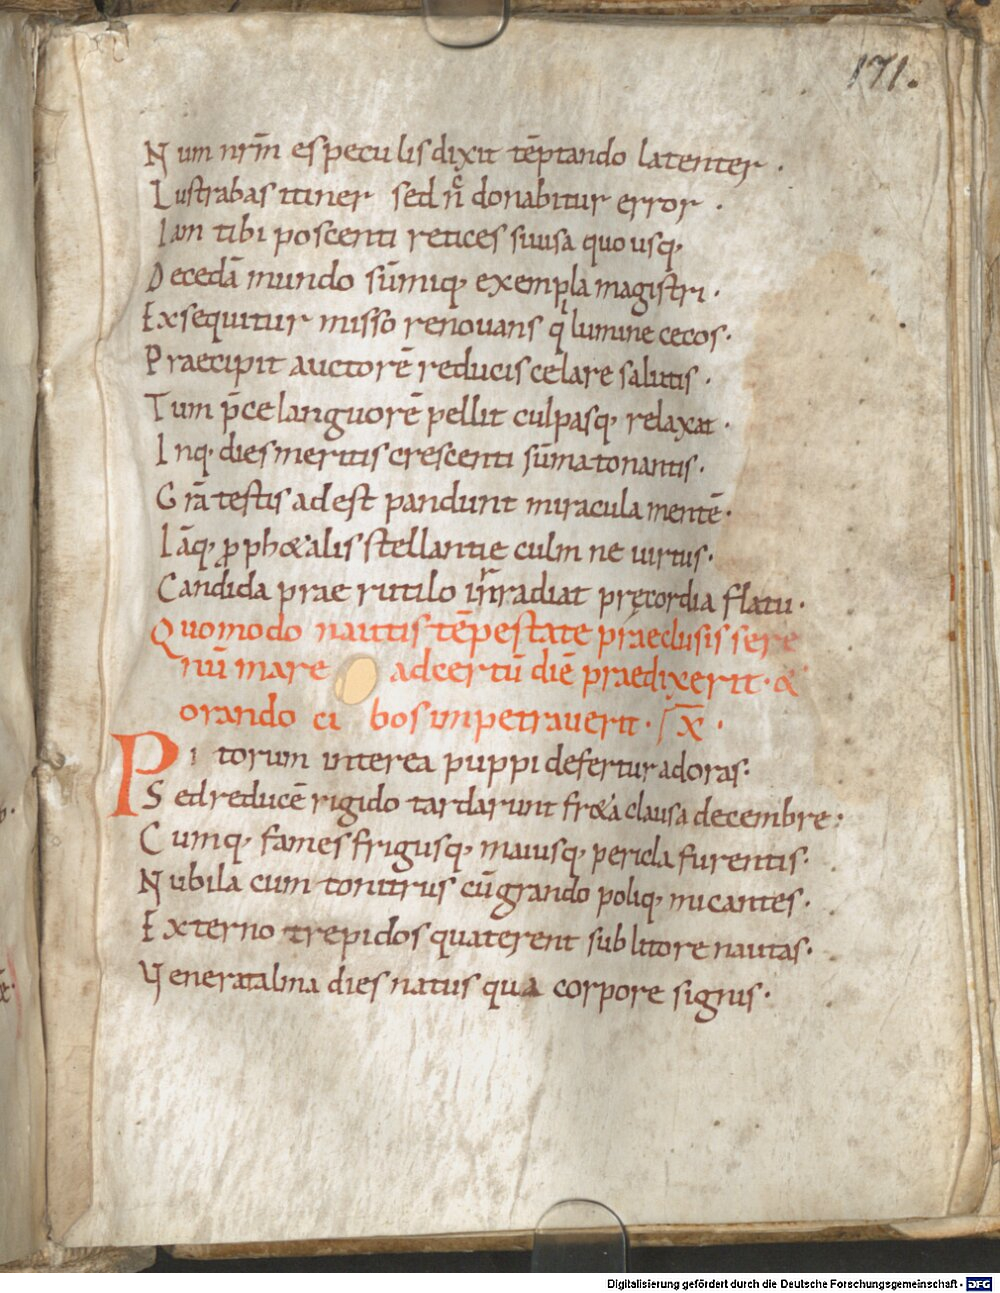 171.
Num nr̄m e speculis dixit tēptando latenter .
Lustrabas itiner sed n̄c donabitur error .
Iam tibi poscenti retices siuisa quousq;
Decedā mundo sūmiq; exempla magistri .
Exsequitur misso renouans q lumine cecos .
Praecipit auctorē reducis celare salutis .
Tum p̄ce languorē pellit culpasq; relaxat .
Inq; dies meritis crescenti sūma tonantis .
Grā testis adest pandunt miracula mentē .
Iāq; ꝓph&alis stellante culmine uirtus .
Candida prae rutilo inradiat pręcordia flatu .
Quomodo nautis tēpestate praeclusis sere
nū mare ad certū diē praedixerit . &
orando cibos impetrauerit . X .
Pictorum interea puppi defertur ad oras .
Sed reducē rigido tardarunt fr&a clausa decembre .
Cumq; fames frigusq; maiusq; pericla furentis .
Nubila cum tonitrus cū grando poliq; micantes .
Externo trepidos quaterent sub litore nautas .
Venerat alma dies natus qua corpore signis .
Digitalisierung gefördert durch die Deutsche Forschungsgemeinschaft - DFG